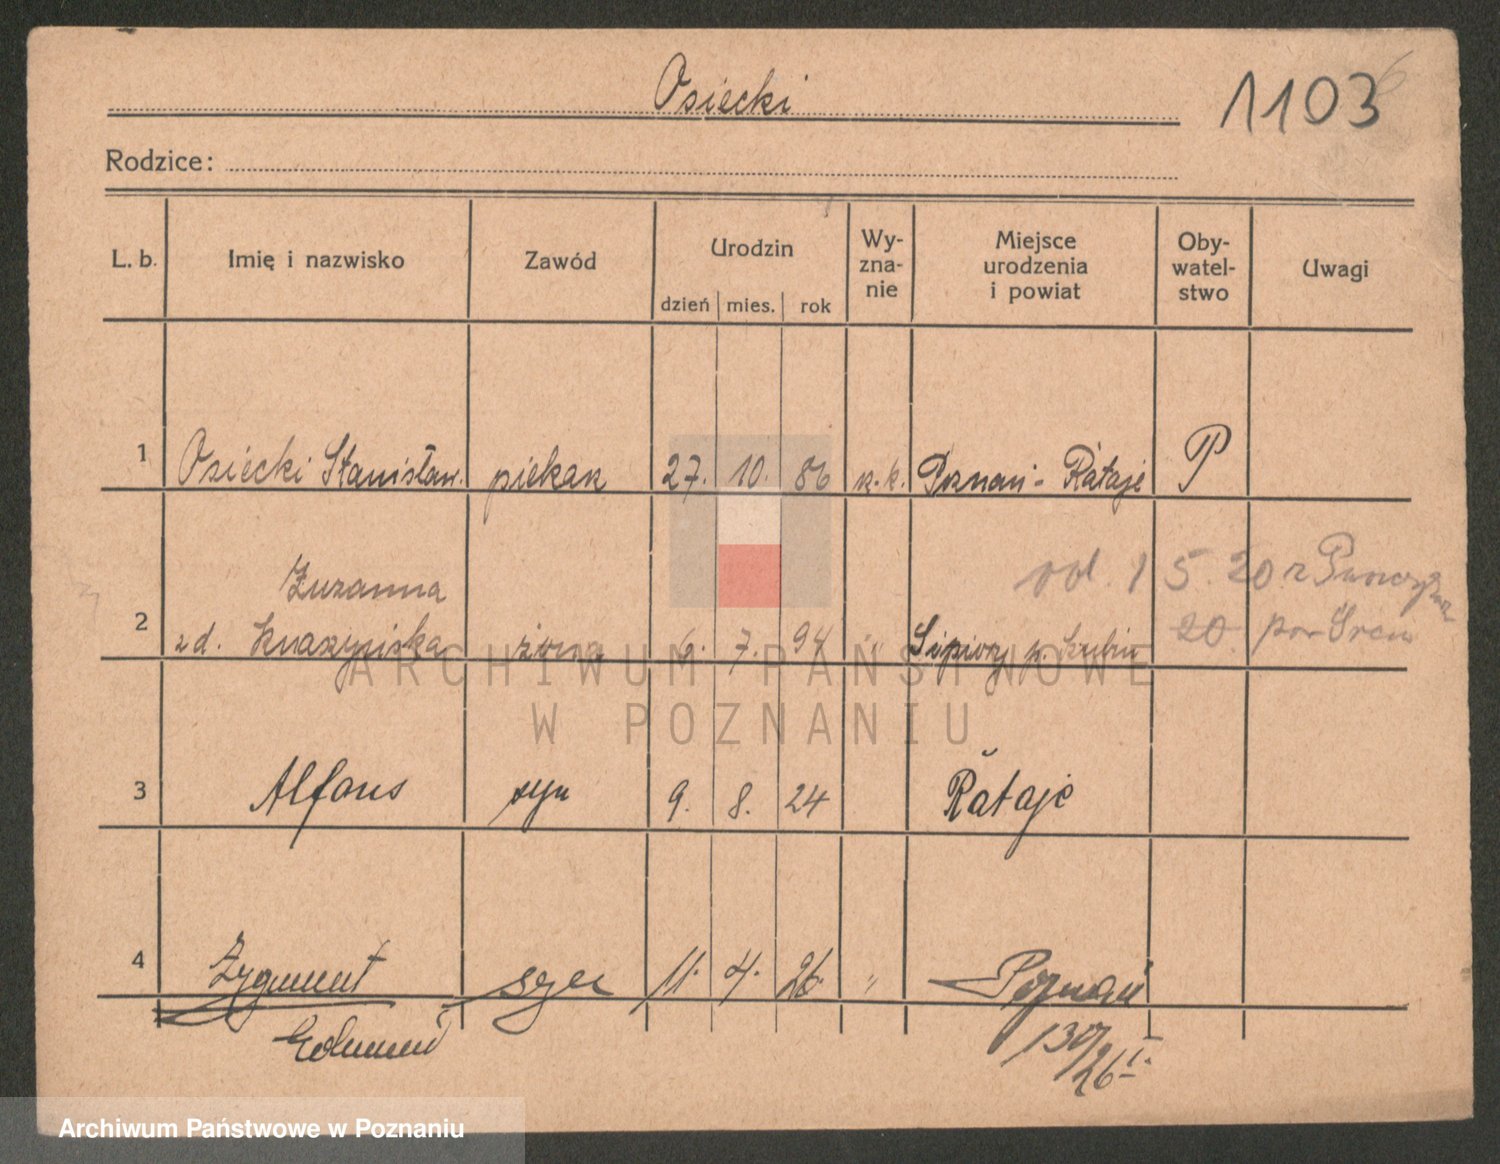 Osiecki
1103
Rodzice:
L. b. Imię i nazwisko Zawód Urodzin Wy-zna-nie Miejsce urodzenia i powiat Oby-watel-stwo Uwagi
dzień mies. rok
1 Osiecki Stanisław. piekarz 27. 10. 86 r.k. Poznań - Rataje P
Zuzanna
od. 1 5. 20 z
2 zd. żona 6. 7. 94 " p. Szubin
20. pow Śrem
ARCHIWUM PAŃSTWOWE
W POZNANIU
3 Alfons syn 9. 8. 24 Rataje
4 Zygmunt syn 11. 4. 26. " Poznań
Edmund
130/26 I.
Archiwum Państwowe w Poznaniu